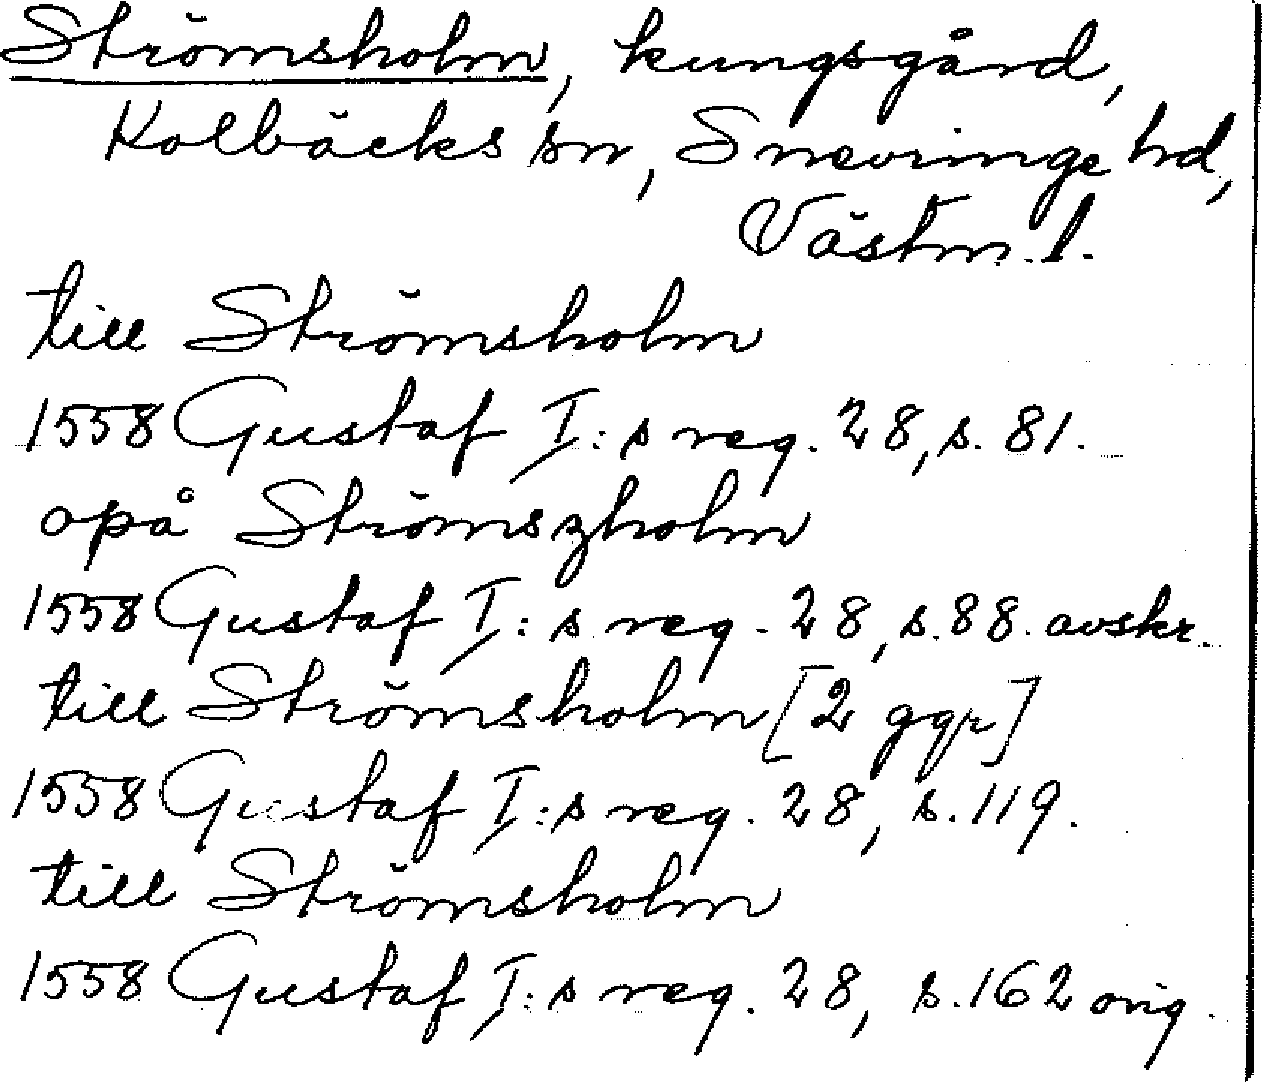 Strömsholm, kungsgård,
Kolbäcks sn, Snevringe hd,
Västm. l.
till Strömsholm
1558 Gustaf I:s reg. 28, s. 81.
opå Strömszholm
1558 Gustaf I:s reg. 28, s. 88. avskr.
till Strömsholm [2 ggr]
1558 Gustaf I:s reg. 28, s. 119.
till Strömsholm
1558 Gustaf I:s reg. 28, s. 162 orig.